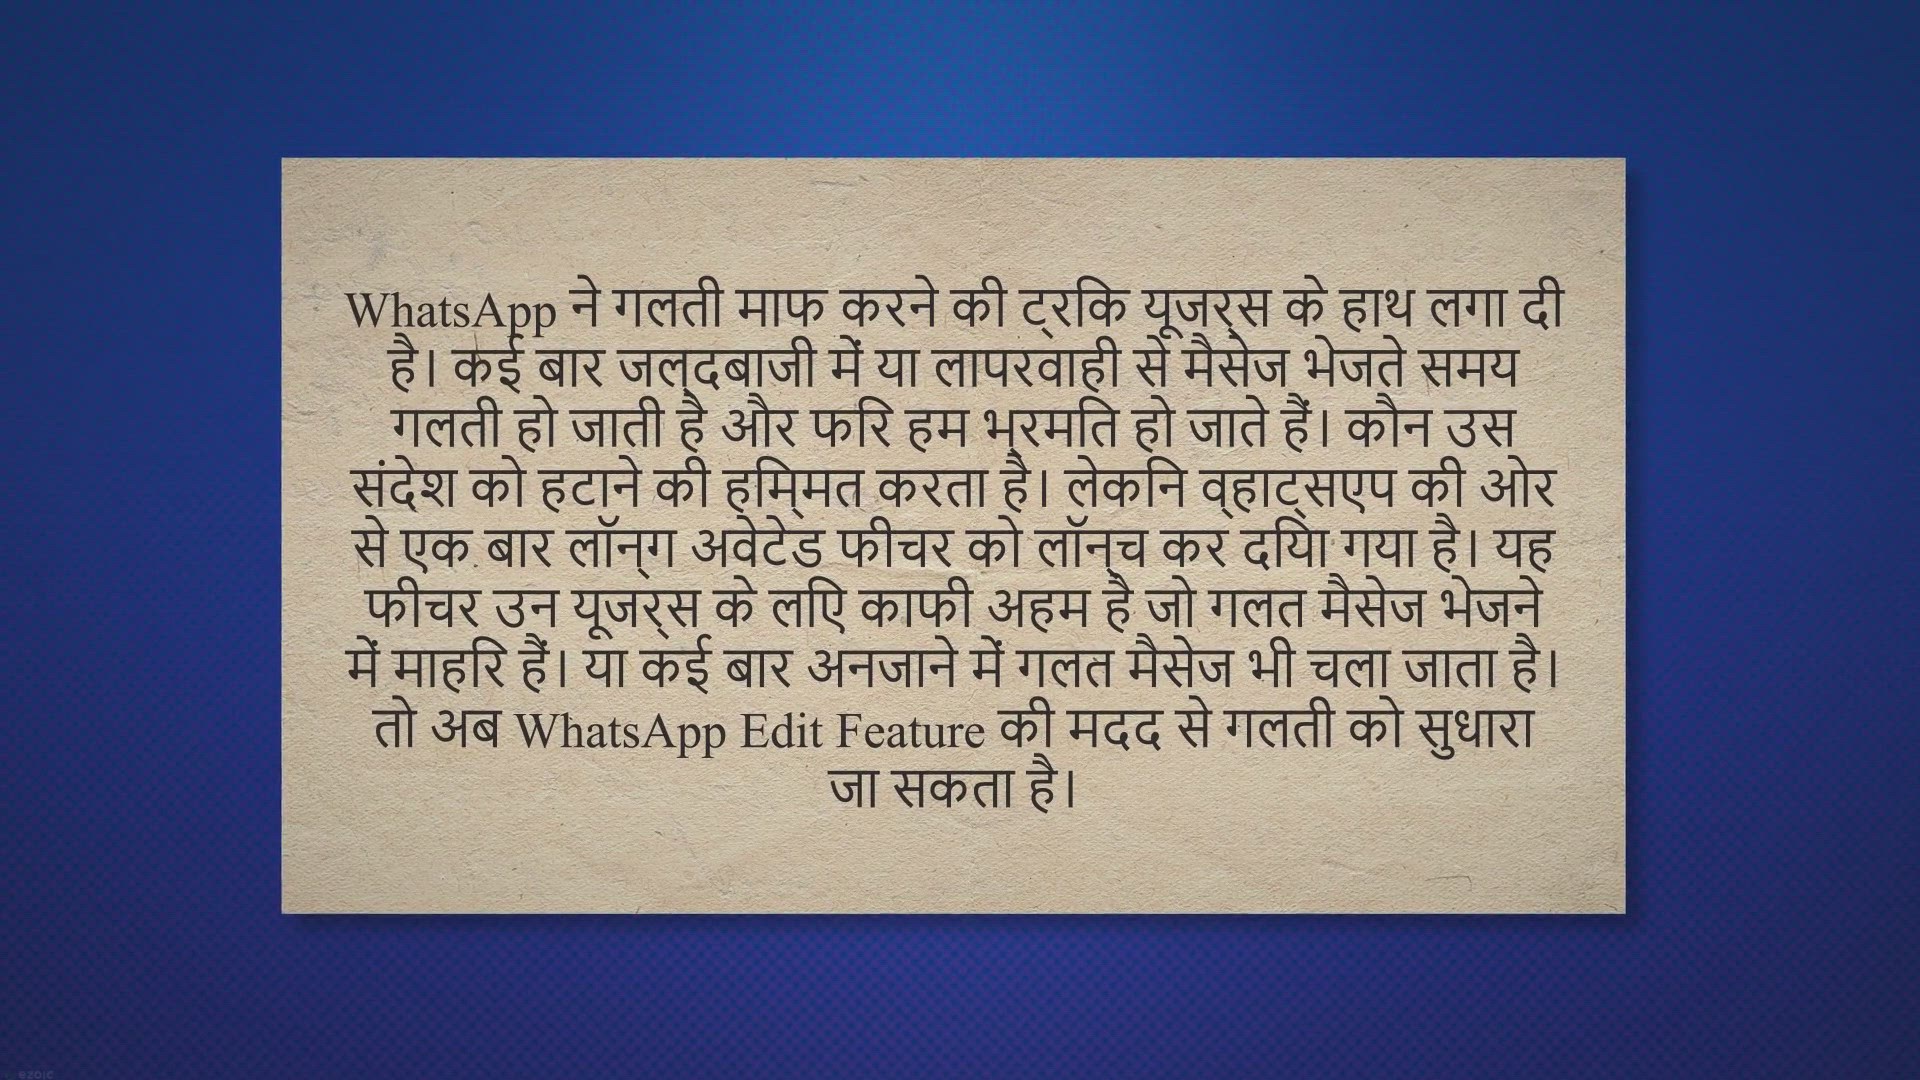 WhatsApp ने गलती माफ करने की ट्रिक यूजर्स के हाथ लगा दी
है। कई बार जल्दबाजी में या लापरवाही से मैसेज भेजते समय
गलती हो जाती है और फिर हम भ्रमित हो जाते हैं। कौन उस
संदेश को हटाने की हिम्मत करता है। लेकिन व्हाट्सएप की ओर
से एक बार लॉन्ग अवेटेड फीचर को लॉन्च कर दिया गया है। यह
फीचर उन यूजर्स के लिए काफी अहम है जो गलत मैसेज भेजने
में माहिर हैं। या कई बार अनजाने में गलत मैसेज भी चला जाता है।
तो अब WhatsApp Edit Feature की मदद से गलती को सुधारा
जा सकता है।
ezoic